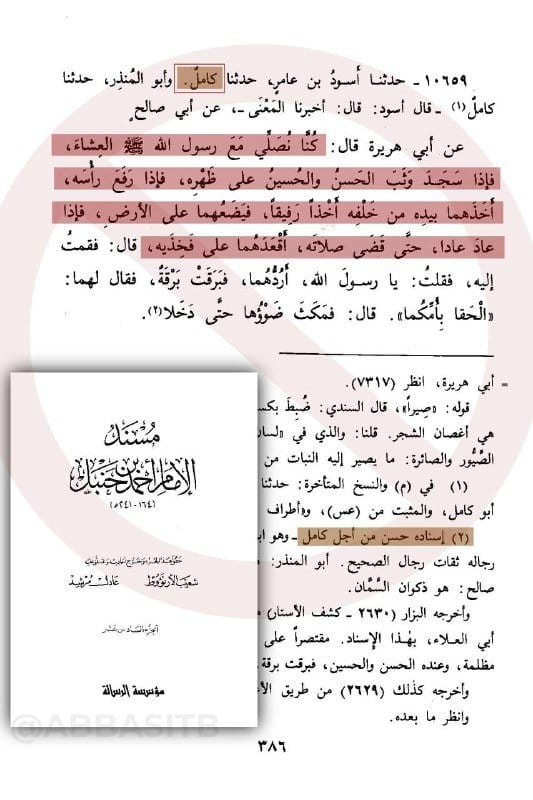 ١٠٦٥٩ - حدثنا أسودُ بن عامرٍ، حدثنا كاملٌ. وأبو المُنذِر، حدثنا
كاملٌ (١) - قال أسود: قال: أخبرنا المَعْنَى -، عن أبي صالحٍ
عن أبي هريرة قال: كُنَّا نُصَلِّي مَعَ رسول الله ﷺ العِشاءَ،
فإذا سَجَدَ وَثَبَ الحَسنُ والحُسينُ على ظَهْرِه، فإذا رَفَعَ رأْسَه،
أَخَذَهما بيدِه من خَلْفِه أَخْذاً رَفِيقاً، فيَضَعُهما على الأرضِ، فإذا
عادَ عادا، حتَّى قَضَى صلاتَه، أَقْعَدَهُما على فَخِذَيه، قال: فقمتُ
إليه، فقلتُ: يا رسولَ الله، أَرُدُّهُما، فبَرَقَتْ بَرْقَةٌ، فقال لهما:
«الْحَقا بِأُمِّكُما». قال: فمَكَثَ ضَوْؤُها حتَّى دَخَلا (٢).
= أبي هريرة، انظر (٧٣١٧).
قوله: «صِيراً»، قال السندي: ضُبِطَ بكس
هي أغصان الشجر. قلنا: والذي في «لسان
الصَّيُّور والصائرة: ما يصير إليه النبات من
(١) في (م) والنسخ المتأخرة: حدثنا
أبو كامل، والمثبت من (عس)، و«أطراف
(٢) إسناده حسن من أجل كامل - وهو اب
رجاله ثقات رجال الصحيح. أبو المنذر:
صالح: هو ذكوان السَّمَّان.
وأخرجه البزار (٢٦٣٠ - كشف الأستار)
أبي العلاء، بهٰذا الإسناد. مقتصراً على
مظلمة، وعنده الحسن والحسين، فبرقت برقة.
وأخرجه كذلك (٢٦٢٩) من طريق الأ
وانظر ما بعده.
مُسْنَد
الإمام أحمد بن حنبل
(١٦٤ - ٢٤١ هـ)
شعيب الأرنؤوط عادل مرشد
الجزء السادس عشر
مؤسسة الرسالة
@ABBASITB
٣٨٦